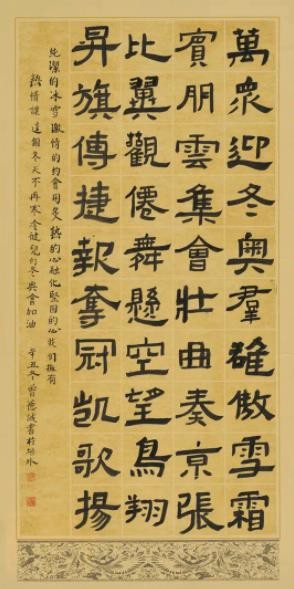 萬眾迎冬奧羣雄傲雪霜
賓朋雲集會壯曲奏京張
比翼觀僊舞懸空望鳥翔
昇旗傳捷報奪冠凱歌揚
純潔的冰雪激情的約會用炙熱的心融化堅固的心我们擁有
熱情讓這個冬天不再寒冷健兒们冬奥會加油
辛丑冬曾德誠書於